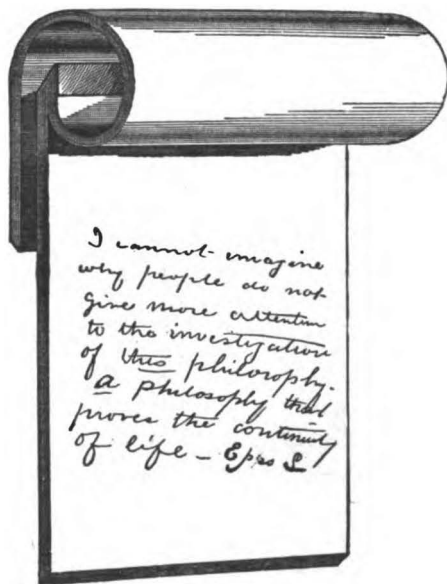 I cannot imagine
why people do not
give more attention
to the investigation
of this philosophy.
a philosophy that
proves the continuity
of life – Epes S